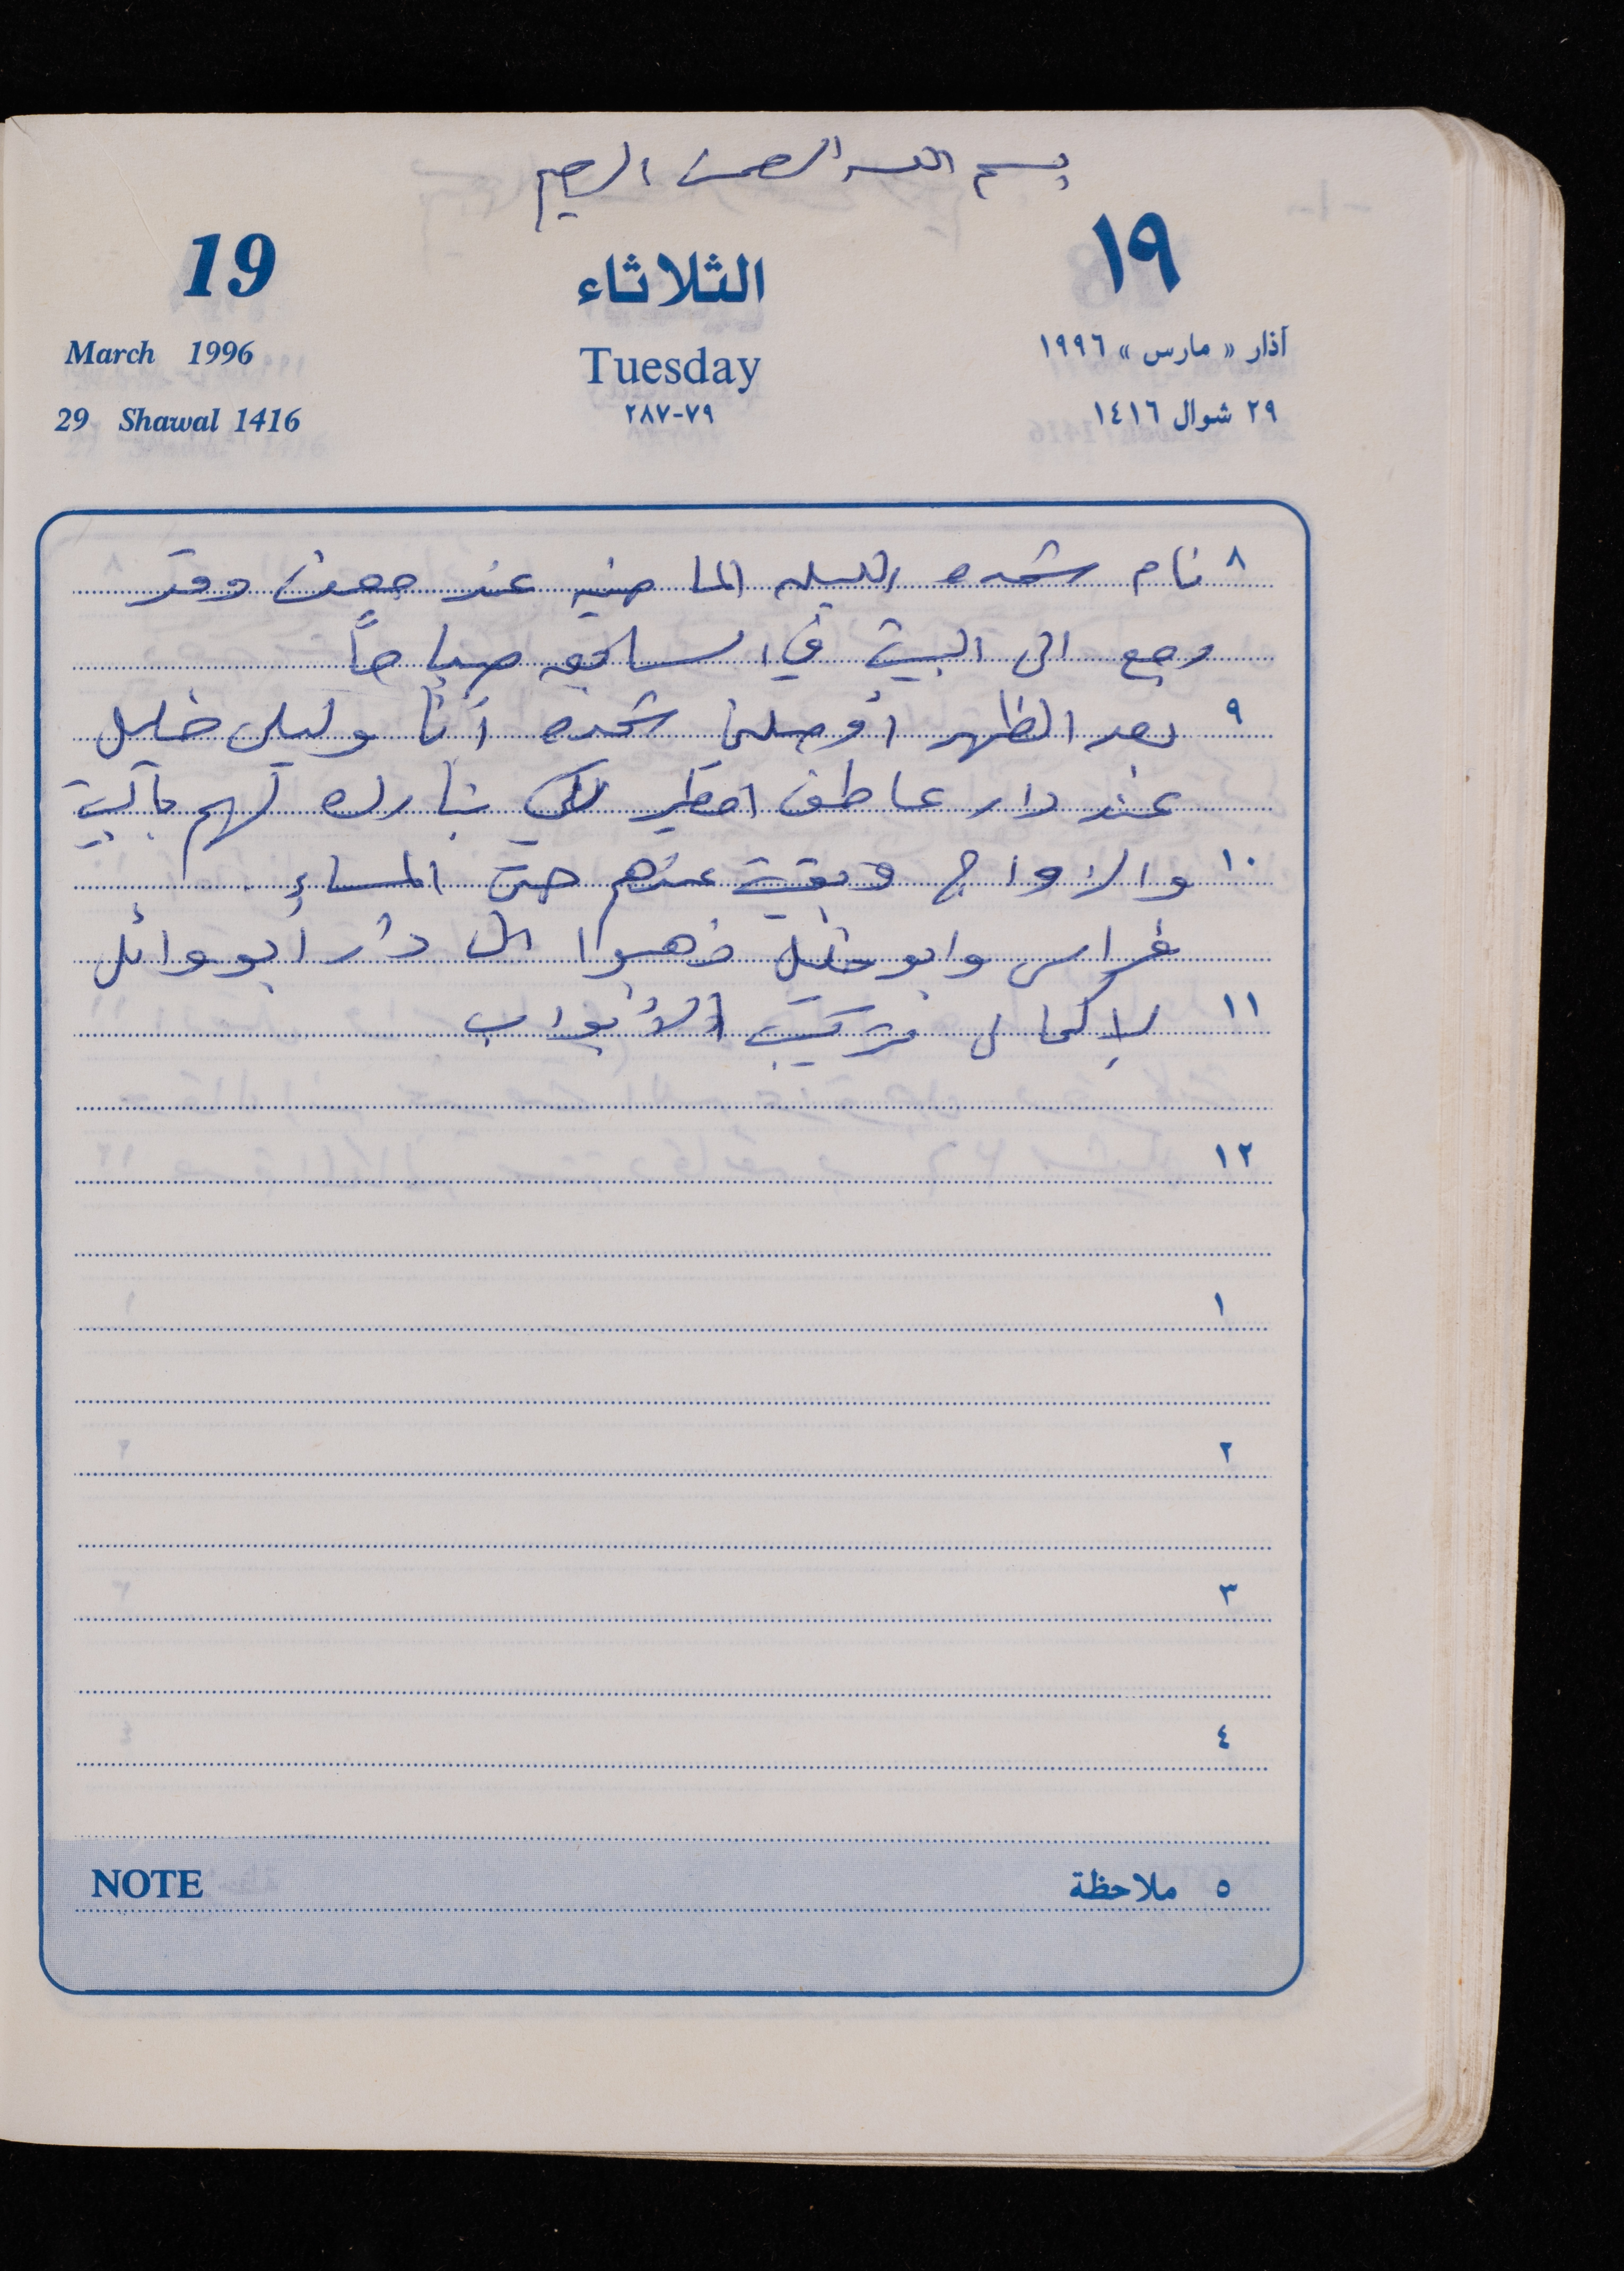 بسم الله الرحمن الرحيم
19 الثلاثاء ١٩
March 1996 Tuesday آذار « مارس » ١٩٩٦
29 Shawal 1416 ٢٨٧-٧٩ ٢٩ شوال ١٤١٦
٨ نام شحده الليله الماضيه عند معن وقد
رجع الى البيت في السابعه صباحاً
٩ بعد الظهر أوصلنا شحده أنا وليلى خليل
عند دار عاطف لكي نبارك لهم بالبيت
١٠ والازواج وبقيت عندهم حتى المساء .
فراس وابو خليل ذهبوا الى دار أبو وائل
١١ لإكمال تركيب الأبواب
١٢
١
٢
٣
٤
NOTE ٥ ملاحظة